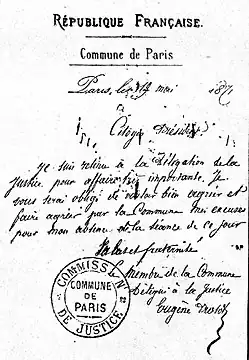 RÉPUBLIQUE FRANÇAISE.
Commune de Paris
Paris, le mai 187
Citoyen Président
Je suis retenu à la Délégation de la
Justice pour affaire très importante. Je
vous serai obligé de vouloir bien agréer et
faire agréer par la Commune mes excuses
pour mon absence de la séance de ce jour
Salut et fraternité
Membre de la Commune
Délégué à la Justice
Eugène Protot
COMMISSION DE JUSTICE
COMMUNE
DE
PARIS